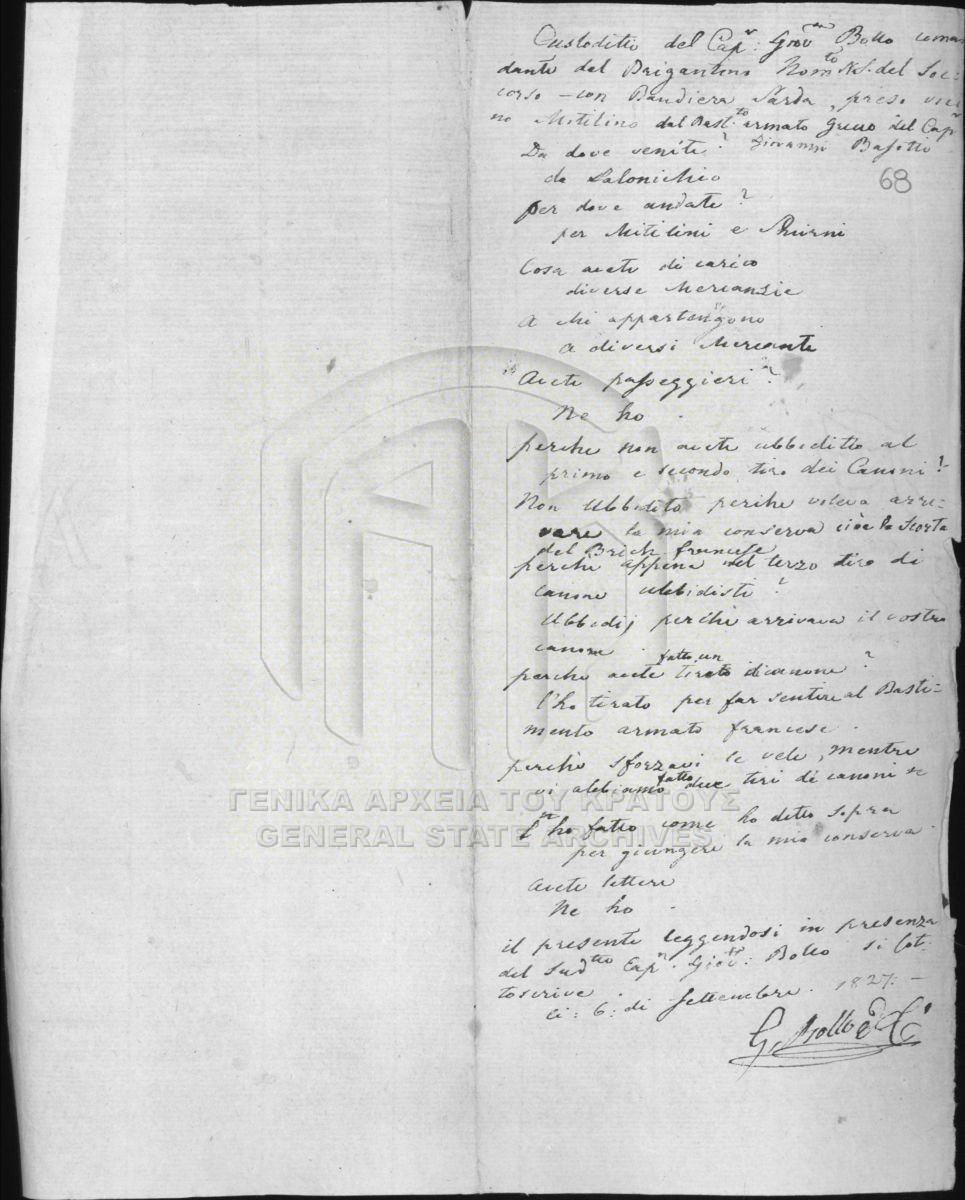 Custoditio del Cap.n: Giov.ni Bollo coman
dante del Brigantino Nom.to N.S. del Soc=
corso – con Bandiera Sarda, preso vici
no Mitilino dal Bast.to armato Greco del Cap.n
Giovanni
Da dove venite?
68
da Salonichio
per dove andate?
per Mitilini e
Cosa avete di carico
diverse Mercanzie
A chi appartengono
a diversi Mercante
Avete passeggieri?
Ne ho .
perche non avete ubbeditto al
primo e secondo tiro dei Canoni?
Non Ubbedito perche voleva arri-
vare la mia conserva cioè la Scorta
del Brich francese
perche appena del terzo tiro di
canone ubbidisti?
Ubbedij perche arrivava il vostro
canone .
perche avete fatto un tirato di canone?
l'ho tirato per far sentire al Basti=
mento armato francese .
perche sforzavi le vele, mentre
vi abbiamo fatto due tiri di canoni
l'ho fatto come ho detto sopra
per giungere la mia conserva .
Avete lettere
Ne ho .
il presente leggendosi in presenza
del Sud.tto Cap.n Giov.ni: Bollo si sot:
toscrive .
li: 6: di Settembre . 1827: –
G. Bollo
ΓΕΝΙΚΑ ΑΡΧΕΙΑ ΤΟΥ ΚΡΑΤΟΥΣ
GENERAL STATE ARCHIVES